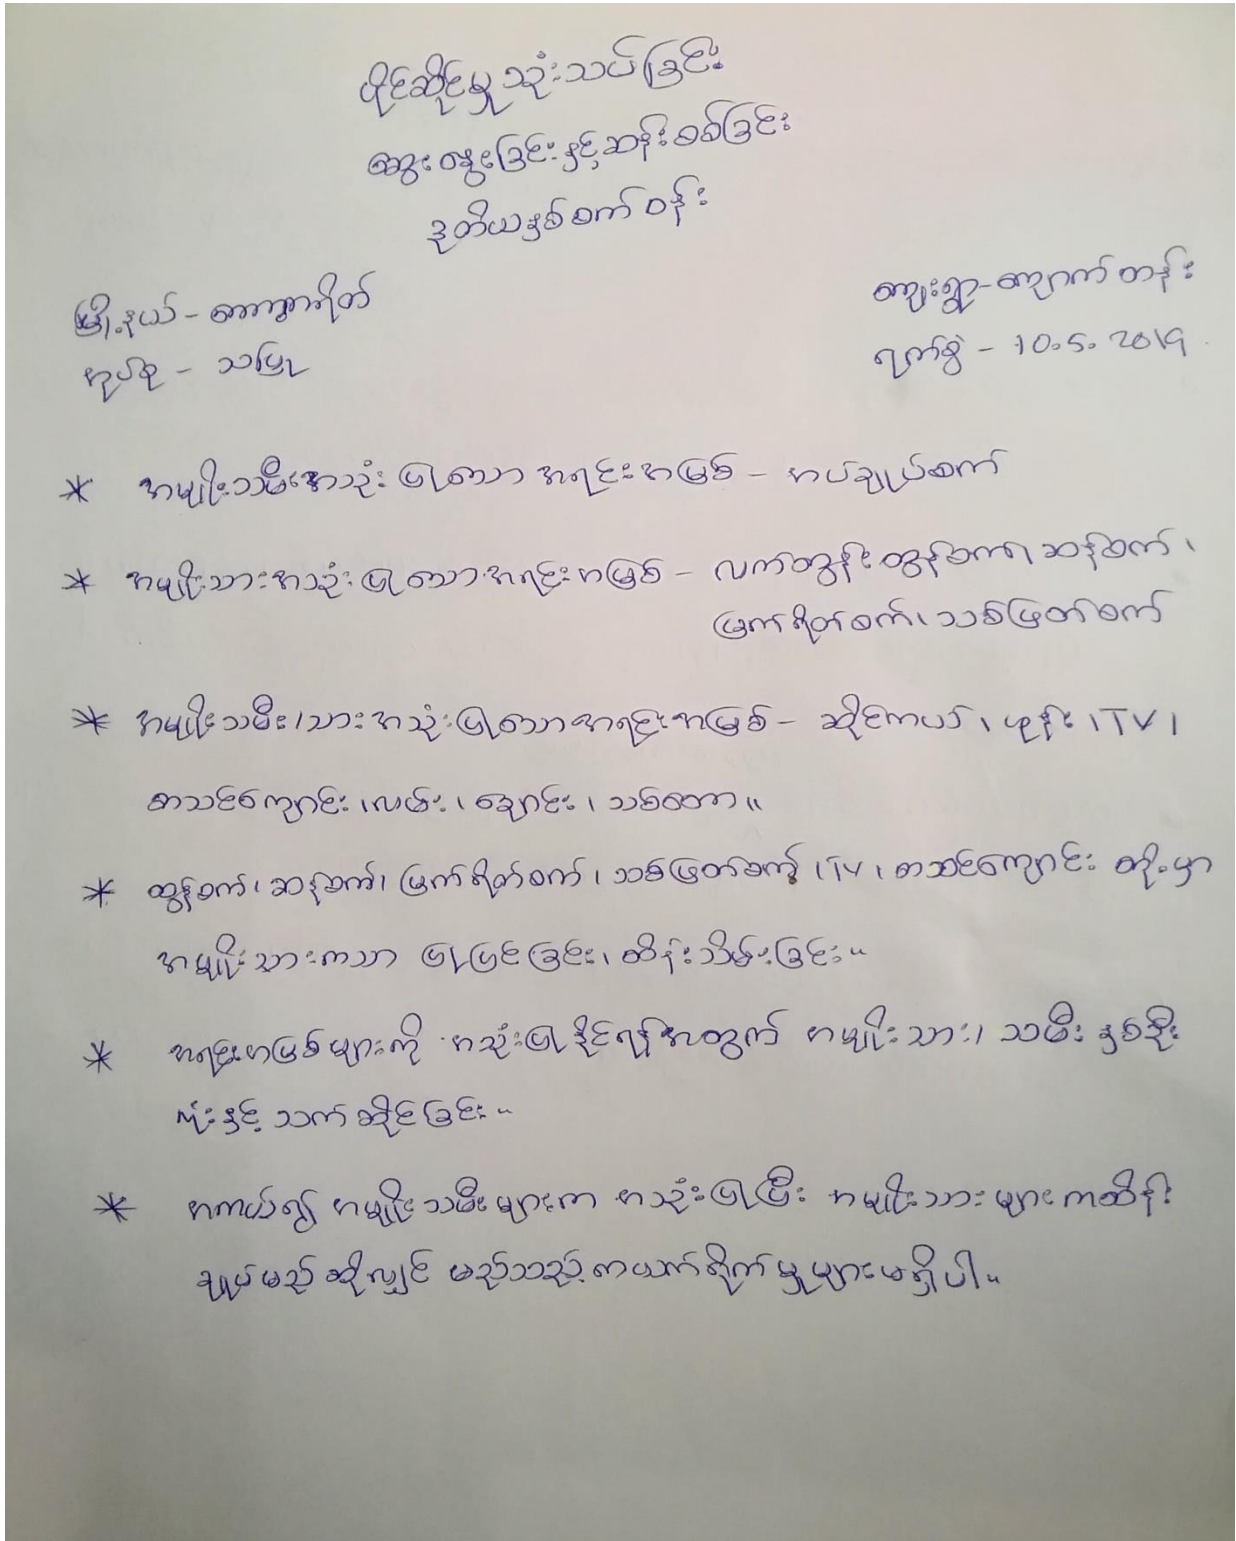 ပိုင်ဆိုင်မှုသုံးသပ်ခြင်း
ဆွေးနွေးခြင်းနှင့်ဆန်းစစ်ခြင်း
ဒုတိယနှစ်စက်ဝန်း
မြို့နယ် - ကော့ကရိတ်
ကျေးရွာ-ကျောက်တန်း
အုပ်စု - သမြု
ရက်စွဲ - 10.5.2019.
* အမျိုးသမီးအသုံးပြုသောအရင်းအမြစ် - အပ်ချုပ်စက်
* အမျိုးသားအသုံးပြုသောအရင်းအမြစ် - လက်တွန်းထွန်စက်၊ ဆန်စက်၊
မြက်ရိတ်စက်၊ သစ်ဖြတ်စက်
* အမျိုးသမီး၊သားအသုံးပြုသောအရင်းအမြစ် - ဆိုင်ကယ်၊ ဖုန်း၊TV၊
စာသင်ကျောင်း၊လမ်း၊ ချောင်း၊ သစ်တော။
* ထွန်စက်၊ဆန်စက်၊ မြက်ရိတ်စက်၊ သစ်ဖြတ်စက်၊TV၊ စာသင်ကျောင်း တို့မှာ
အမျိုးသားကသာ ပြုပြင်ခြင်း၊ ထိန်းသိမ်းခြင်း။
* အရင်းအမြစ်များကို အသုံးပြုနိုင်ရန်အတွက် အမျိုးသား၊ သမီး နှစ်ဦး
လုံးနှင့် သက်ဆိုင်ခြင်း။
* အကယ်၍ အမျိုးသမီးများက အသုံးပြုပြီး အမျိုးသားများကထိန်း
ချုပ်မည်ဆိုလျှင် မည်သည့်ကယက်ရိုက်မှုများမရှိပါ။